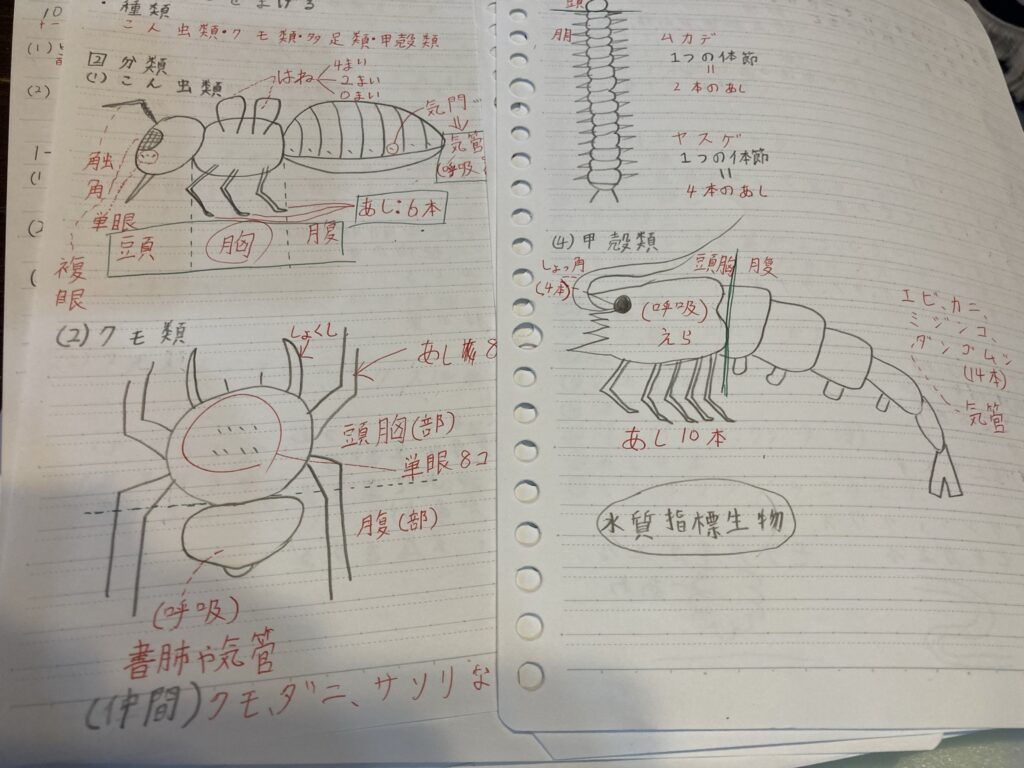 ・種類
こん虫類・クモ類・多足類・甲殻類
2 分類
(1) こん虫類
はね
4まい
2まい
0まい
気門
気管
(呼吸
触角
単眼
複眼
あし:6本
頭
胸
腹
(2) クモ類
しょくし
あし 8
頭胸(部)
単眼8コ
腹(部)
(呼吸)
書肺や気管
(仲間)クモ、ダニ、サソリな
頭
胴
ムカデ
1つの体節
=
2本のあし
ヤスデ
1つの体節
=
4本のあし
(4) 甲殻類
しょっ角
(4本)
頭胸
腹
(呼吸)
えら
あし10本
エビ、カニ、
ミジンコ、
ダンゴムシ
(14本)
気管
水質指標生物
10
(1)
(2)